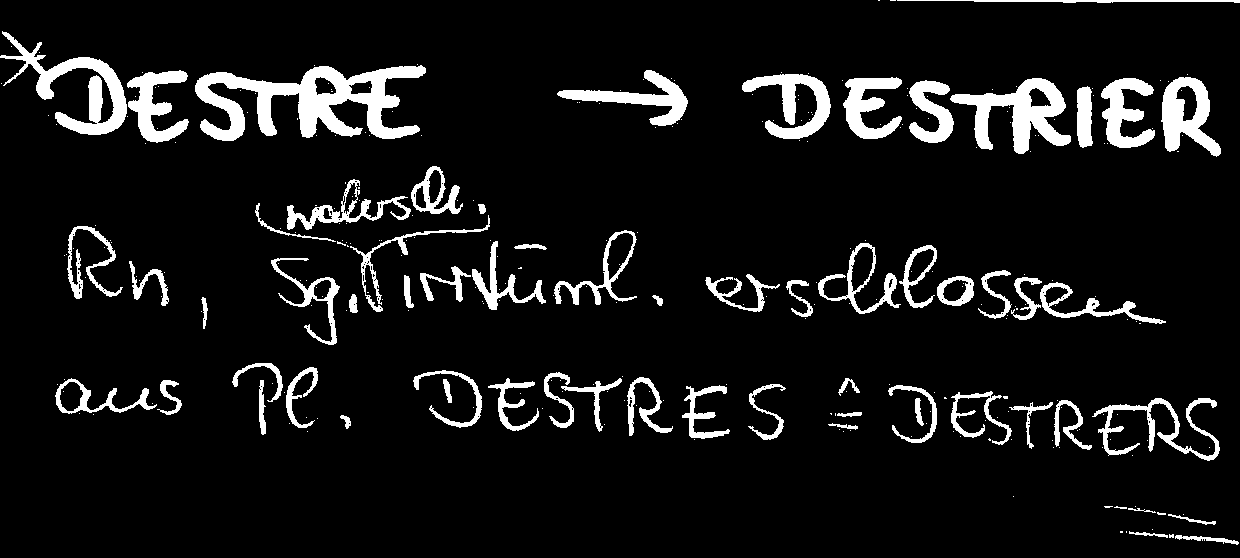 *DESTRE → DESTRIER
wahrsch.
Rn, Sg. irrtüml. erschlossen
aus Pl. DESTRES ≙ DESTRERS